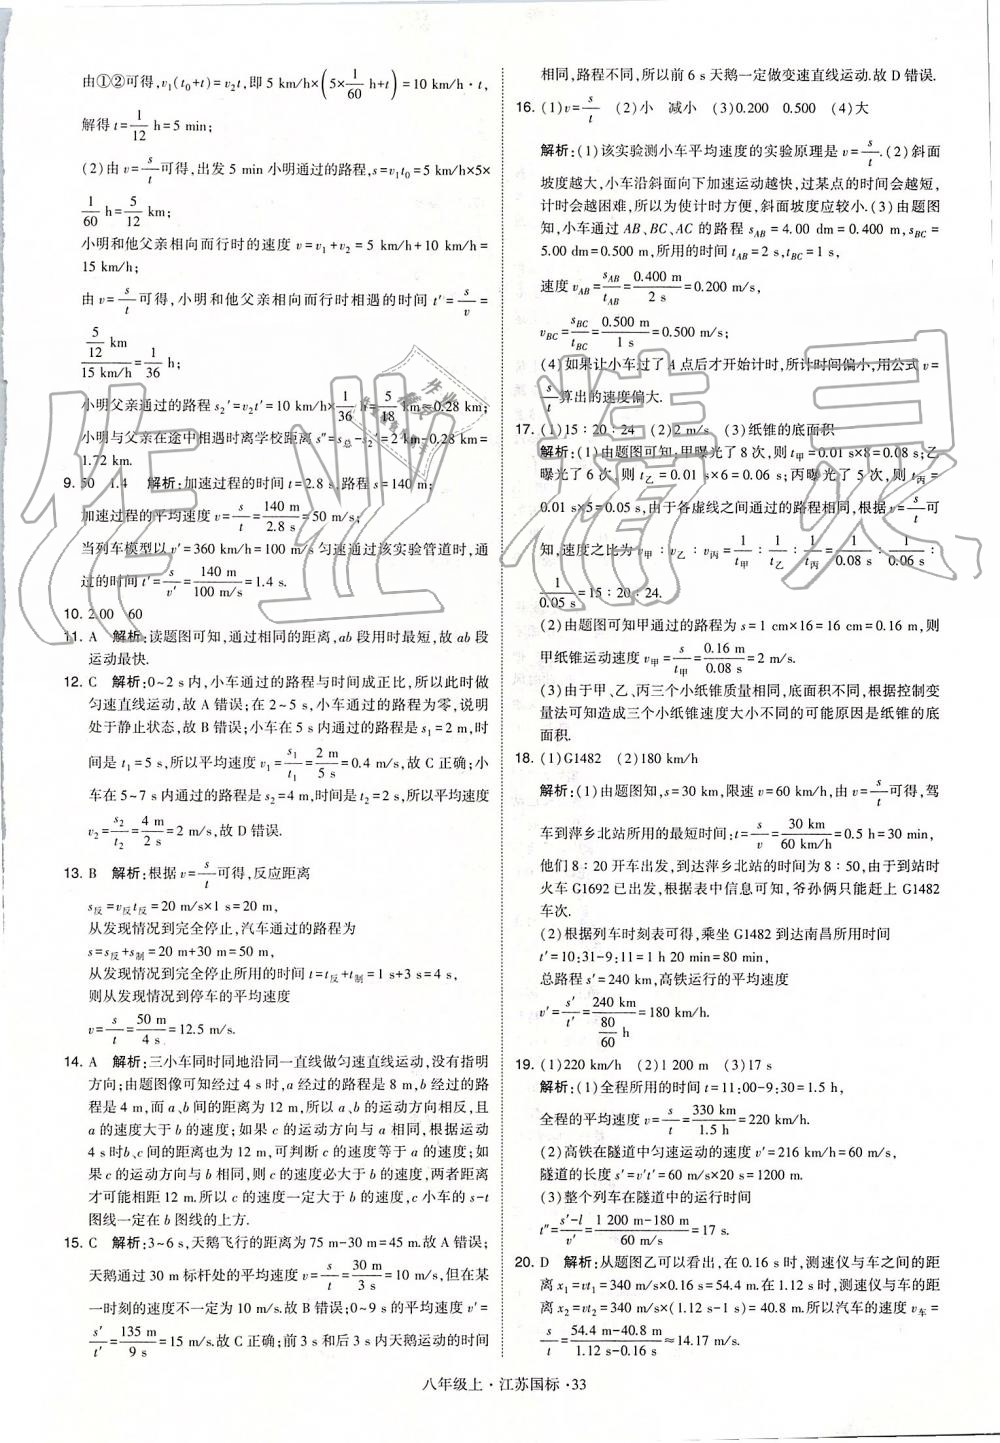 由①②可得,v₁(t₀+t)=v₂t,即 5 km/h×(5×1/60 h+t)=10 km/h·t,
解得 t=1/12 h=5 min;
(2)由 v=s/t可得,出发 5 min 小明通过的路程,s=v₁t₀=5 km/h×5×
1/60 h=5/12 km;
小明和他父亲相向而行时的速度 v=v₁+v₂=5 km/h+10 km/h=
15 km/h;
由 v=s/t可得,小明和他父亲相向而行时相遇的时间 t′=s/v=
(5/12 km)/(15 km/h)=1/36 h;
小明父亲通过的路程 s₂′=v₂t′=10 km/h×1/36 h=5/18 km≈0.28 km;
小明与父亲在途中相遇时离学校距离 s″=s总-s₂′=2 km-0.28 km=
1.72 km.
9. 50 1.4 解析:加速过程的时间 t=2.8 s,路程 s=140 m;
加速过程的平均速度 v=s/t=140 m/2.8 s=50 m/s;
当列车模型以 v′=360 km/h=100 m/s 匀速通过该实验管道时,通
过的时间 t′=s/v′=140 m/100 m/s=1.4 s.
10. 2.00 60
11. A 解析:读题图可知,通过相同的距离,ab 段用时最短,故 ab 段
运动最快.
12. C 解析:0~2 s 内,小车通过的路程与时间成正比,所以此时做
匀速直线运动,故 A 错误;在 2~5 s,小车通过的路程为零,说明
处于静止状态,故 B 错误;小车在 5 s 内通过的路程是 s₁=2 m,时
间是 t₁=5 s,所以平均速度 v₁=s₁/t₁=2 m/5 s=0.4 m/s,故 C 正确;小
车在 5~7 s 内通过的路程是 s₂=4 m,时间是 t₂=2 s,所以平均速度
v₂=s₂/t₂=4 m/2 s=2 m/s,故 D 错误.
13. B 解析:根据 v=s/t可得,反应距离
s反=v反t反=20 m/s×1 s=20 m,
从发现情况到完全停止,汽车通过的路程为
s=s反+s制=20 m+30 m=50 m,
从发现情况到完全停止所用的时间 t=t反+t制=1 s+3 s=4 s,
则从发现情况到停车的平均速度
v=s/t=50 m/4 s=12.5 m/s.
14. A 解析:三小车同时同地沿同一直线做匀速直线运动,没有指明
方向;由题图像可知经过 4 s 时,a 经过的路程是 8 m,b 经过的路
程是 4 m,而 a、b 间的距离为 12 m,所以 a、b 的运动方向相反,且
a 的速度大于 b 的速度;如果 c 的运动方向与 a 相同,根据运动
4 s时b、c 间的距离也为 12 m,可判断 c 的速度等于 a 的速度;如
果 c 的运动方向与 b 相同,则 c 的速度必大于 b 的速度,两者距离
才可能相距 12 m.所以 c 的速度一定大于 b 的速度,c 小车的 s-t
图线一定在 b 图线的上方.
15. C 解析:3~6 s,天鹅飞行的距离为 75 m-30 m=45 m.故 A 错误;
天鹅通过 30 m 标杆处的平均速度 v=s/t=30 m/3 s=10 m/s,但在某
一时刻的速度不一定为 10 m/s.故 B 错误;0~9 s 的平均速度 v′=
s′/t′=135 m/9 s=15 m/s.故 C 正确;前 3 s 和后 3 s 内天鹅运动的时间
相同,路程不同,所以前 6 s 天鹅一定做变速直线运动.故 D 错误.
16. (1)v=s/t (2)小 减小 (3)0.200 0.500 (4)大
解析:(1)该实验测小车平均速度的实验原理是 v=s/t.(2)斜面
坡度越大,小车沿斜面向下加速运动越快,过某点的时间会越短,
计时会越困难,所以为使计时方便,斜面坡度应较小.(3)由题图
知,小车通过 AB、BC、AC 的路程 sAB=4.00 dm=0.400 m,sBC=
5.00 dm=0.500 m,所用的时间 tAB=2 s,tBC=1 s,
速度 vAB=sAB/tAB=0.400 m/2 s=0.200 m/s,
vBC=sBC/tBC=0.500 m/1 s=0.500 m/s;
(4)如果让小车过了 A 点后才开始计时,所计时间偏小,用公式 v=
s/t算出的速度偏大.
17. (1)15∶20∶24 (2)2 m/s (3)纸锥的底面积
解析:(1)由题图可知,甲曝光了 8 次,则 t甲=0.01 s×8=0.08 s;乙
曝光了 6 次,则 t乙=0.01 s×6=0.06 s;丙曝光了 5 次,则 t丙=
0.01 s×5=0.05 s,由于各虚线之间通过的路程相同,根据 v=s/t可
知,速度之比为 v甲∶v乙∶v丙=1/t甲∶1/t乙∶1/t丙=1/0.08 s∶1/0.06 s∶
1/0.05 s=15∶20∶24.
(2)由题图可知甲通过的路程为 s=1 cm×16=16 cm=0.16 m,则
甲纸锥运动速度 v甲=s/t甲=0.16 m/0.08 s=2 m/s.
(3)由于甲、乙、丙三个小纸锥质量相同,底面积不同,根据控制变
量法可知造成三个小纸锥速度大小不同的可能原因是纸锥的底
面积.
18. (1)G1482 (2)180 km/h
解析:(1)由题图知,s=30 km,限速 v=60 km/h,由 v=s/t可得,驾
车到萍乡北站所用的最短时间:t=s/v=30 km/60 km/h=0.5 h=30 min,
他们 8∶20 开车出发,到达萍乡北站的时间为 8∶50,由于到站时
火车 G1692 已出发,根据表中信息可知,爷孙俩只能赶上 G1482
车次.
(2)根据列车时刻表可得,乘坐 G1482 到达南昌所用时间
t′=10:31-9:11=1 h 20 min=80 min,
总路程 s′=240 km,高铁运行的平均速度
v′=s′/t′=240 km/(80/60 h)=180 km/h.
19. (1)220 km/h (2)1 200 m (3)17 s
解析:(1)全程所用的时间 t=11:00-9:30=1.5 h,
全程的平均速度 v=s/t=330 km/1.5 h=220 km/h.
(2)高铁在隧道中匀速运动的速度 v′=216 km/h=60 m/s,
隧道的长度 s′=v′t′=60 m/s×20 s=1200 m.
(3)整个列车在隧道中的运行时间
t″=(s′-l)/v′=(1 200 m-180 m)/60 m/s=17 s.
20. D 解析:从题图乙可以看出,在 0.16 s 时,测速仪与车之间的距
离 x₁=vt₁=340 m/s×0.16 s=54.4 m.在 1.12 s 时,测速仪与车的距
离 x₂=vt₂=340 m/s×(1.12 s-1 s)=40.8 m.所以汽车的速度 v车=
s/t=(54.4 m-40.8 m)/(1.12 s-0.16 s)≈14.17 m/s.
八年级上·江苏国标·33
作业精灵